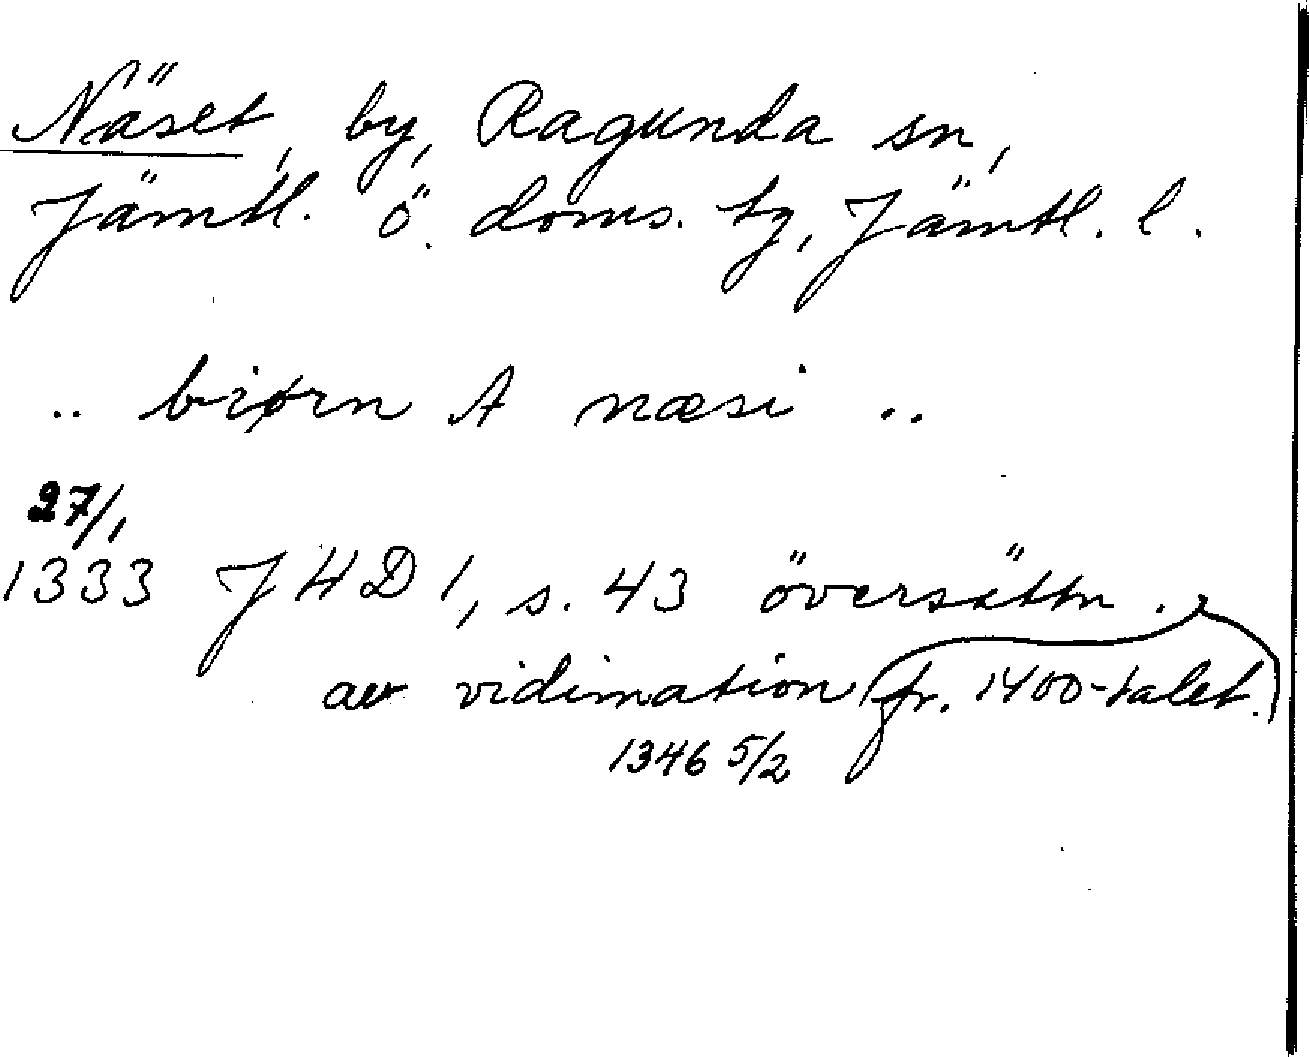 Näset, by, Ragunda sn,
Jämtl. ö. doms. tg, Jämtl. l.
.. biørn A næsi ..
27/1
1333 JHD 1, s. 43 översättn.
av vidimation (fr. 1400-talet.)
1346 5/2